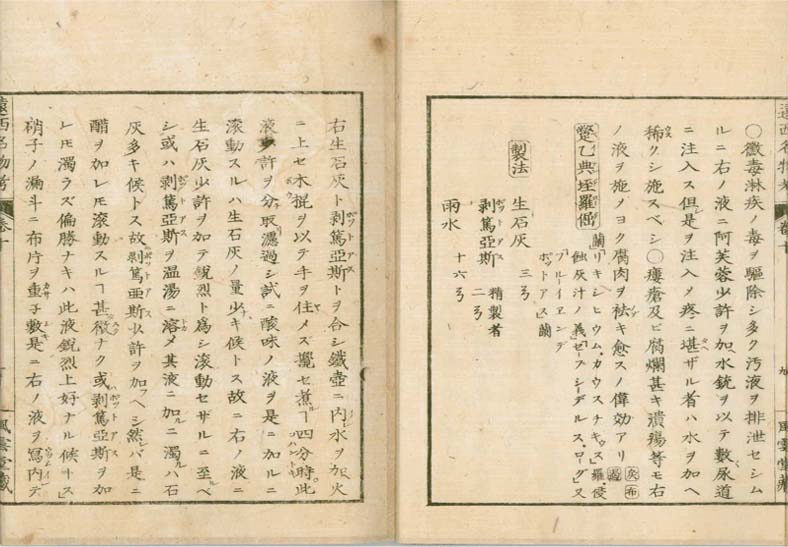 ○黴毒淋疾ノ毒ヲ驅除シ多ク汚液ヲ排泄セシム
ルニ右ノ液ニ阿芙蓉少許ヲ加ヘ水銃ヲ以テ數〻尿道
ニ注入ス但是ヲ注入メ疼ニ堪ザル者ハ水ヲ加ヘ
稀クシ施スベシ○瘻瘡及ビ腐爛甚キ潰瘍等モ右
ノ液ヲ施メヨク腐肉ヲ祛キ愈スノ偉効アリ
蘭
リキシヒウム、カウスチキュス」羅、侵
蝕灰汁ノ義「セープシーデルス、ローグ」又
「ブルーイエンデ
ポットアス」蘭
製法
生石灰 三弓
剥篤亞斯 精製者 二弓
ポットアス
雨水 十六弓
右生石灰ト剥篤亞斯トヲ合シ鐵壺ニ内レ水ヲ加火
ニ上セ木棍ヲ以テ手ヲ住メズ攪セ煮ヿ四分時此
液少許ヲ分取濾過シ試ニ酸味ノ液ヲ是ニ加ルニ
滾動スルハ生石灰ノ量少キ候トス故ニ右ノ液ニ
生石灰少許ヲ加テ鋭烈ト爲シ滾動セザルニ至ベ
シ或ハ剥篤亞斯ヲ温湯ニ溶メ其液ニ加ルニ濁ルハ石
灰多キ候トス故ニ剥篤亞斯少許ヲ加フヘシ然レバ是ニ
醋ヲ加レモ滾動スルヿ甚微ナク或ハ剥篤亞斯ヲ加
レモ濁ラズ偏勝ナキハ此液鋭烈上好ナル候トス」
硝子ノ漏斗ニ布片ヲ重子敷是ニ右ノ液ヲ寫内テ
遠西名物考
卷十
風雲堂藏